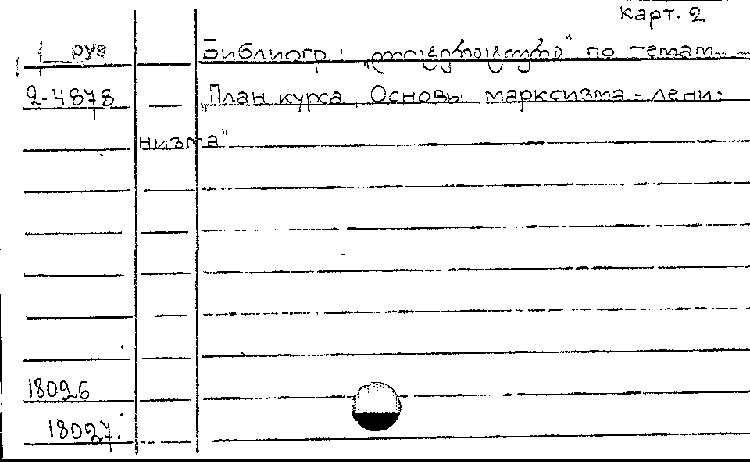 карт. 2
руз Библиогр. по темам
2-4878 — „План курса Основы марксизма-лени-
низма"
18026
18027.